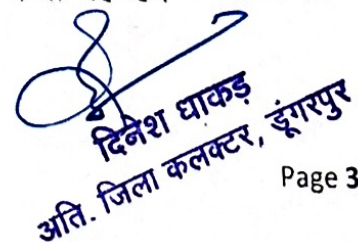 दिनेश धाकड़
अति. जिला कलक्टर, डूंगरपुर
Page 3